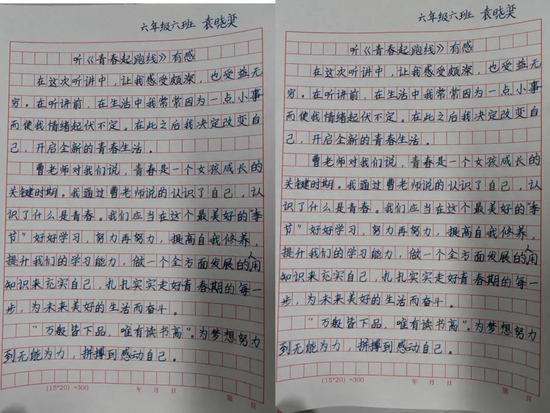 六年级六班 袁晓奕
听《青春起跑线》有感
在这次听讲中，让我感受颇深，也受益无
穷。在听讲前，在生活中我常常因为一点小事
而使我情绪起伏不定。在此之后我决定改变自
己，开启全新的青春生活。
曹老师对我们说，青春是一个女孩成长的
关键时期。我通过曹老师说的认识了自己，认
识了什么是青春。我们应当在这个最美好的“季
节”好好学习，努力再努力，提高自我修养，
提升我们的学习能力，做一个全方面发展的人用
知识来充实自己，扎扎实实走好青春期的每一
步，为未来美好的生活而奋斗。
“万般皆下品，唯有读书高”。为梦想努力
到无能为力，拼搏到感动自己。
(15*20) =300 年 月 日
第 页
六年级六班 袁晓奕
听《青春起跑线》有感
在这次听讲中，让我感受颇深，也受益无
穷。在听讲前，在生活中我常常因为一点小事
而使我情绪起伏不定。在此之后我决定改变自
己，开启全新的青春生活。
曹老师对我们说，青春是一个女孩成长的
关键时期。我通过曹老师说的认识了自己，认
识了什么是青春。我们应当在这个最美好的“季
节”好好学习，努力再努力，提高自我修养，
提升我们的学习能力，做一个全方面发展的人用
知识来充实自己，扎扎实实走好青春期的每一
步，为未来美好的生活而奋斗。
“万般皆下品，唯有读书高”。为梦想努力
到无能为力，拼搏到感动自己。
(15*20) =300 年 月 日
第 页